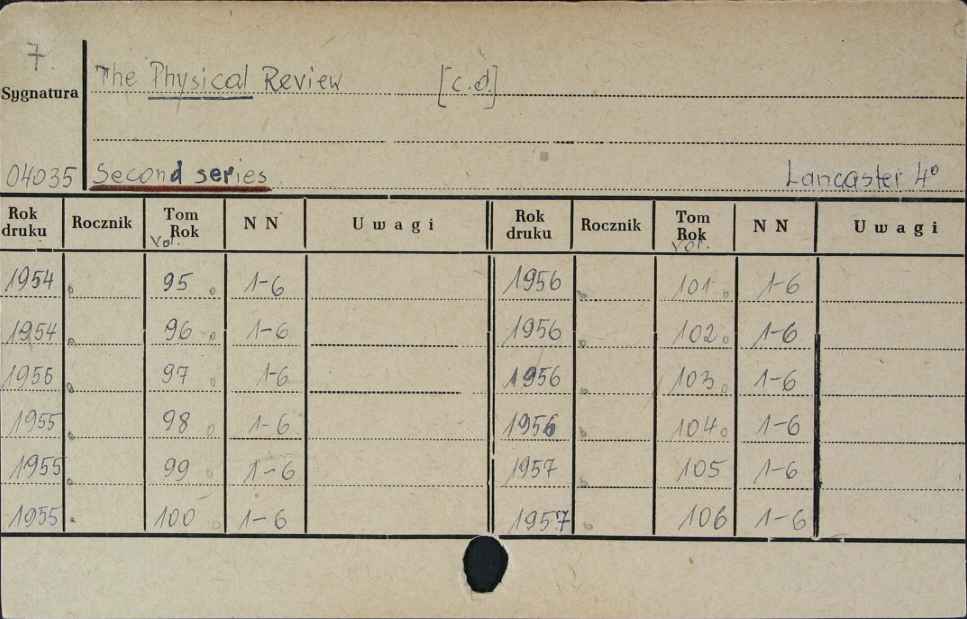 7.
The Physical Review [c.d.]
Sygnatura
04035 Second series Lancaster 4°
Rok druku Rocznik Tom Rok vol. N N Uwagi Rok druku Rocznik Tom Rok vol. N N Uwagi
1954 95 1-6 1956 101 1-6
1954 96 1-6 1956 102 1-6
1955 97 1-6 1956 103 1-6
1955 98 1-6 1956 104 1-6
1955 99 1-6 1957 105 1-6
1955 100 1-6 1957 106 1-6